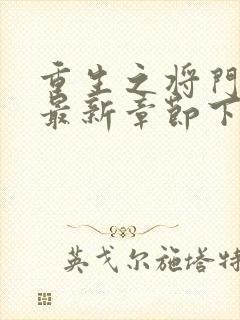 重生之将门
最新章节下
英戈尔施塔特